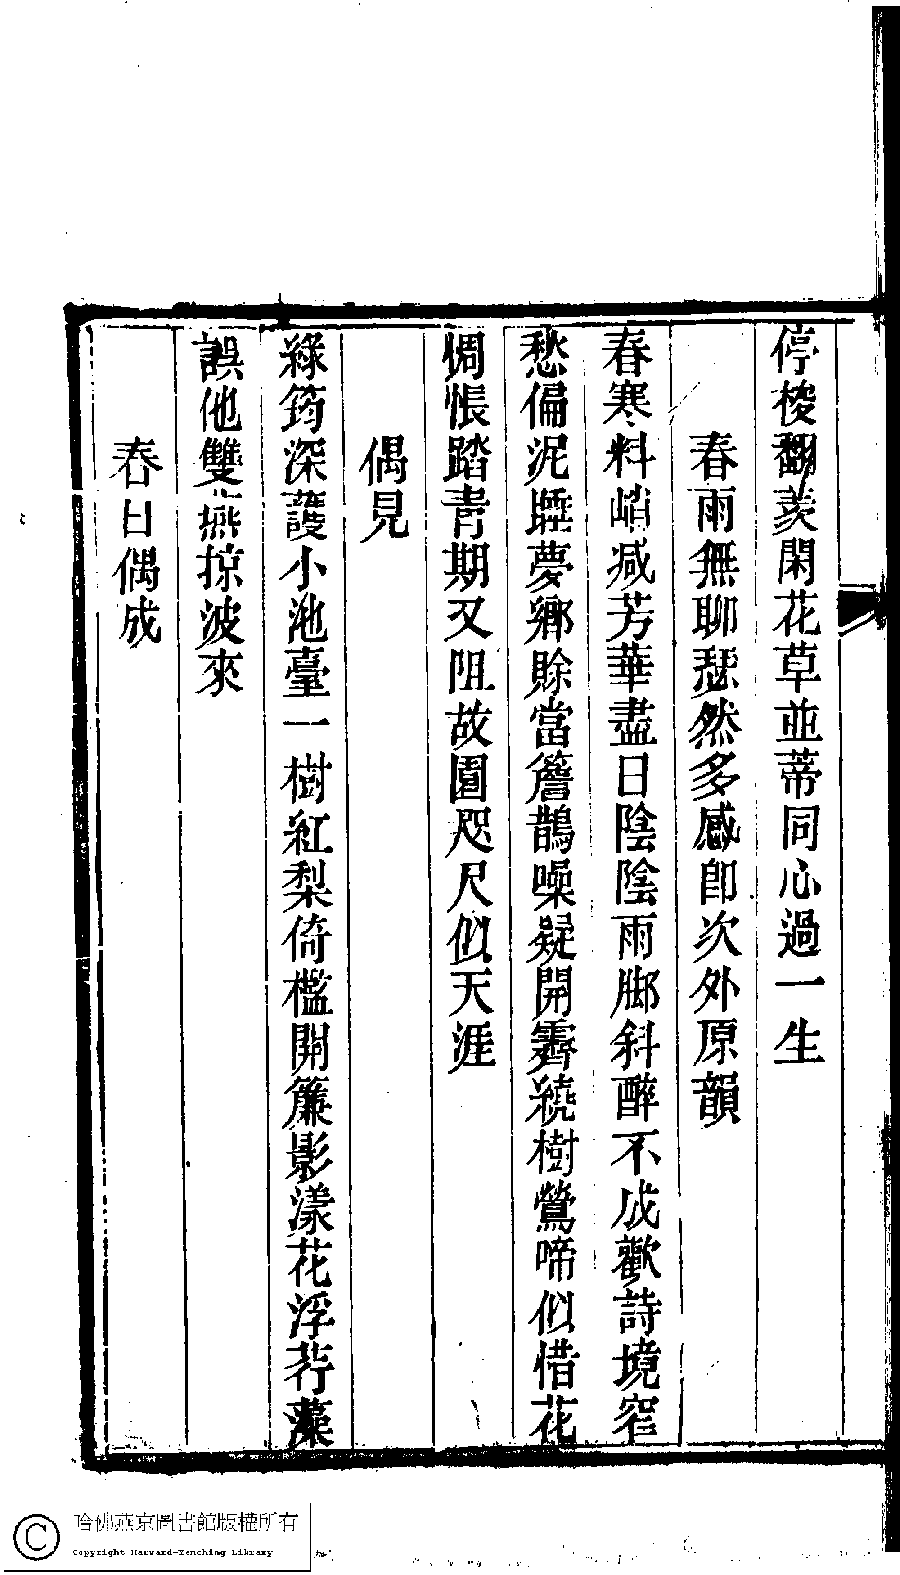 停梭翻羨閑花草並蒂同心過一生
春雨無聊瑟然多感卽次外原韻
春寒料峭减芳華盡日陰陰雨脚斜醉不成歡詩境窄
愁偏泥睡夢鄉賒當簷鵲噪疑開霽繞樹鶯啼似惜花
惆悵踏青期又阻故園咫尺似天涯
偶見
綠筠深護小池臺一樹紅梨倚檻開簾影漾花浮荇藻
誤他雙燕掠波來
春日偶成
哈佛燕京圖書館版權所有
Copyright Harvard-Yenching Library